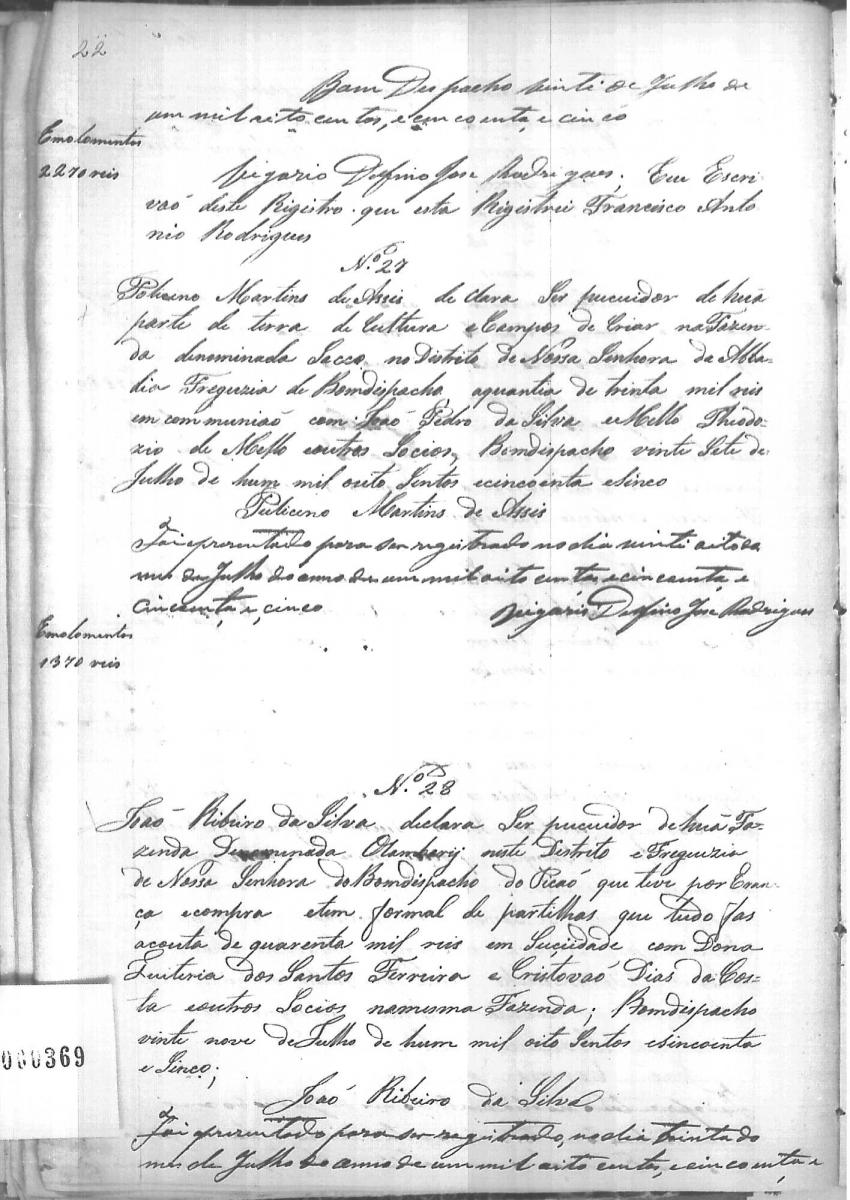 22
Bom Despacho vinti de Julho de
um mil oito centos, e cincoenta, e cinco
Emolomentos
2270 reis
Vigario Delfino Jose Rodrigues. Eu Escri-
vaõ deste Rigistro que esta Rigistrei Francisco Anto
nio Rodrigues
N.º 27
Policeno Martins de Assis de clara Ser pucuidor de huã
parte de terra de Cultura e Campos de Criar na Fazen-
da denominada Sacco no Distrito de Nossa Senhora da Abba-
dia Freguzia de Bomdispacho, aquantia de trinta mil reis
em communiaõ com Joaõ Pedro da Silva e Mello Theodo-
zio de Mello eoutros Socios, Bomdispacho vinte Sete de
Julho de hum mil outo Sentos ecincoenta esinco
Puliceno Martins de Assis
Foi aprezentado para ser registrado no dia vinti oito do
mes de Julho do anno de um mil oito centos, e cincoenta, e
cincoenta, e cinco Vigario Delfino Jose Rodrigues
Emolomentos
1370 reis
N.º 28
Joaõ Ribeiro da Silva declara Ser pucuidor de huã Fa-
zenda Denominada neste Distrito e Freguizia
de Nossa Senhora do Bomdispacho do Picaõ que teve por Eran-
ça ecompra etem formal de partilhas que tudo fas
aconta de quarenta mil reis em Suçiidade com Dona
Quiteria dos Santos Ferreira e Cristovaõ Dias da Cos-
ta eoutros Socios namesma Fazenda; Bomdispacho
vinte nove de Julho de hum mil oito Sentos esincoenta
e Sinco;
000369
Joaõ Ribeiro da Silva
Foi aprezentado para ser registrado, no dia trinta do
mes de Julho do anno de um mil oito centos, e cincoenta, e